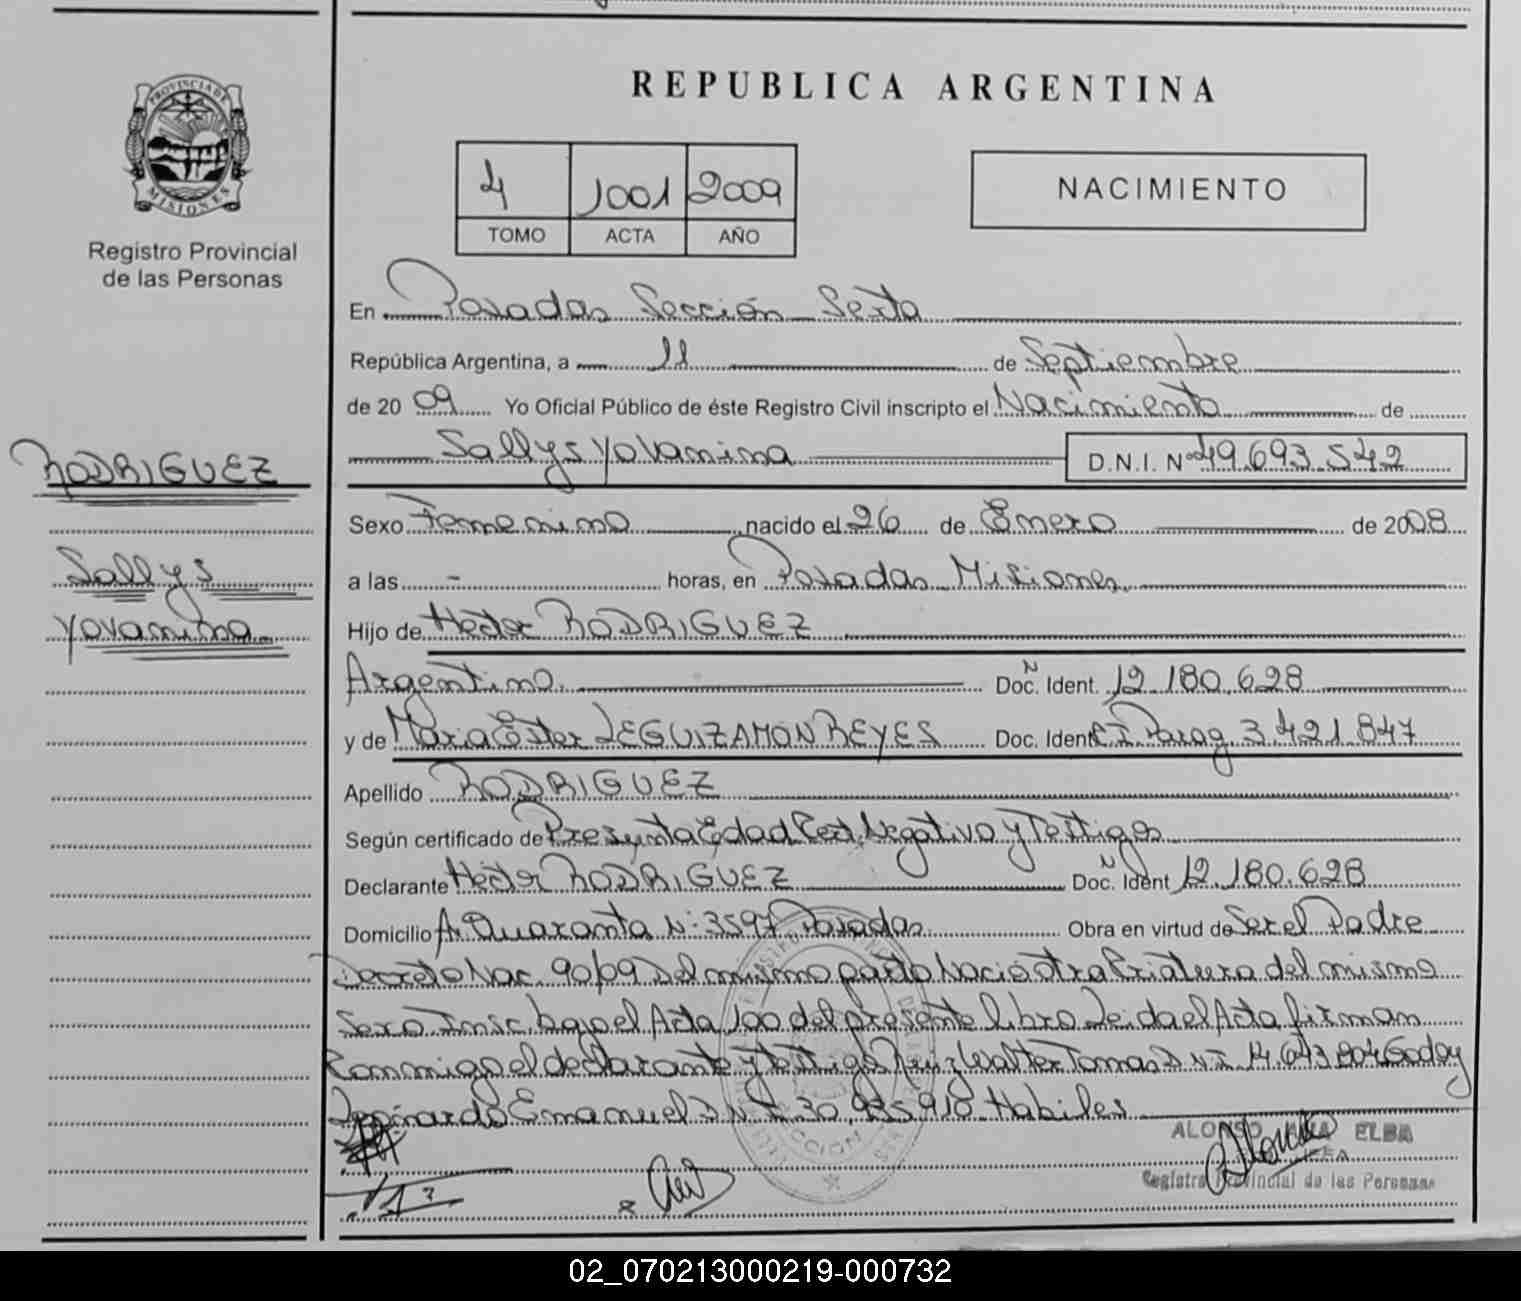 REPUBLICA ARGENTINA
PROVINCIA DE
MISIONES
Registro Provincial
de las Personas
4 1001 2009
TOMO ACTA AÑO
NACIMIENTO
En Posadas Sección Sexta
República Argentina, a 11 de Septiembre
de 2009 Yo Oficial Público de éste Registro Civil inscripto el Nacimiento de
Sallys Yovanina D.N.I. Nº 49.693.542
RODRIGUEZ
Sallys
Yovanina
Sexo Femenino nacido el 26 de Enero de 2008
a las - horas, en Posadas Misiones
Hijo de Héctor RODRIGUEZ
Argentino Doc. Ident. 12.180.628
y de Maria Ester LEGUIZAMON REYES Doc. Ident. CI Parag. 3.421.847
Apellido RODRIGUEZ
Según certificado de Presunta Edad Cert. Negativo y Testigos
Declarante Héctor RODRIGUEZ Doc. Ident 12.180.628
Domicilio Av Quaranta N: 3597 Posadas Obra en virtud de Ser el Padre
Decreto Nac. 90/09 Del mismo parto Nació otra Criatura del mismo
Sexo Insc. bajo el Acta 100 del presente libro Leida el Acta firman
Conmigo el declarante y testigos Ruiz Walter Tomas D N I 14.643.804 Godoy
Leonardo Emanuel D N I 30.935.918 Habiles
ALONSO ANA ELBA
Registro Provincial de las Personas
02_070213000219-000732